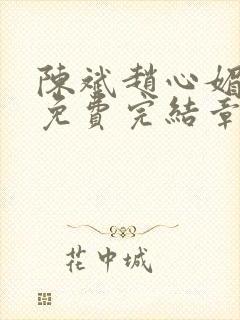 陳斌趙心媚
免費完結章
花中城